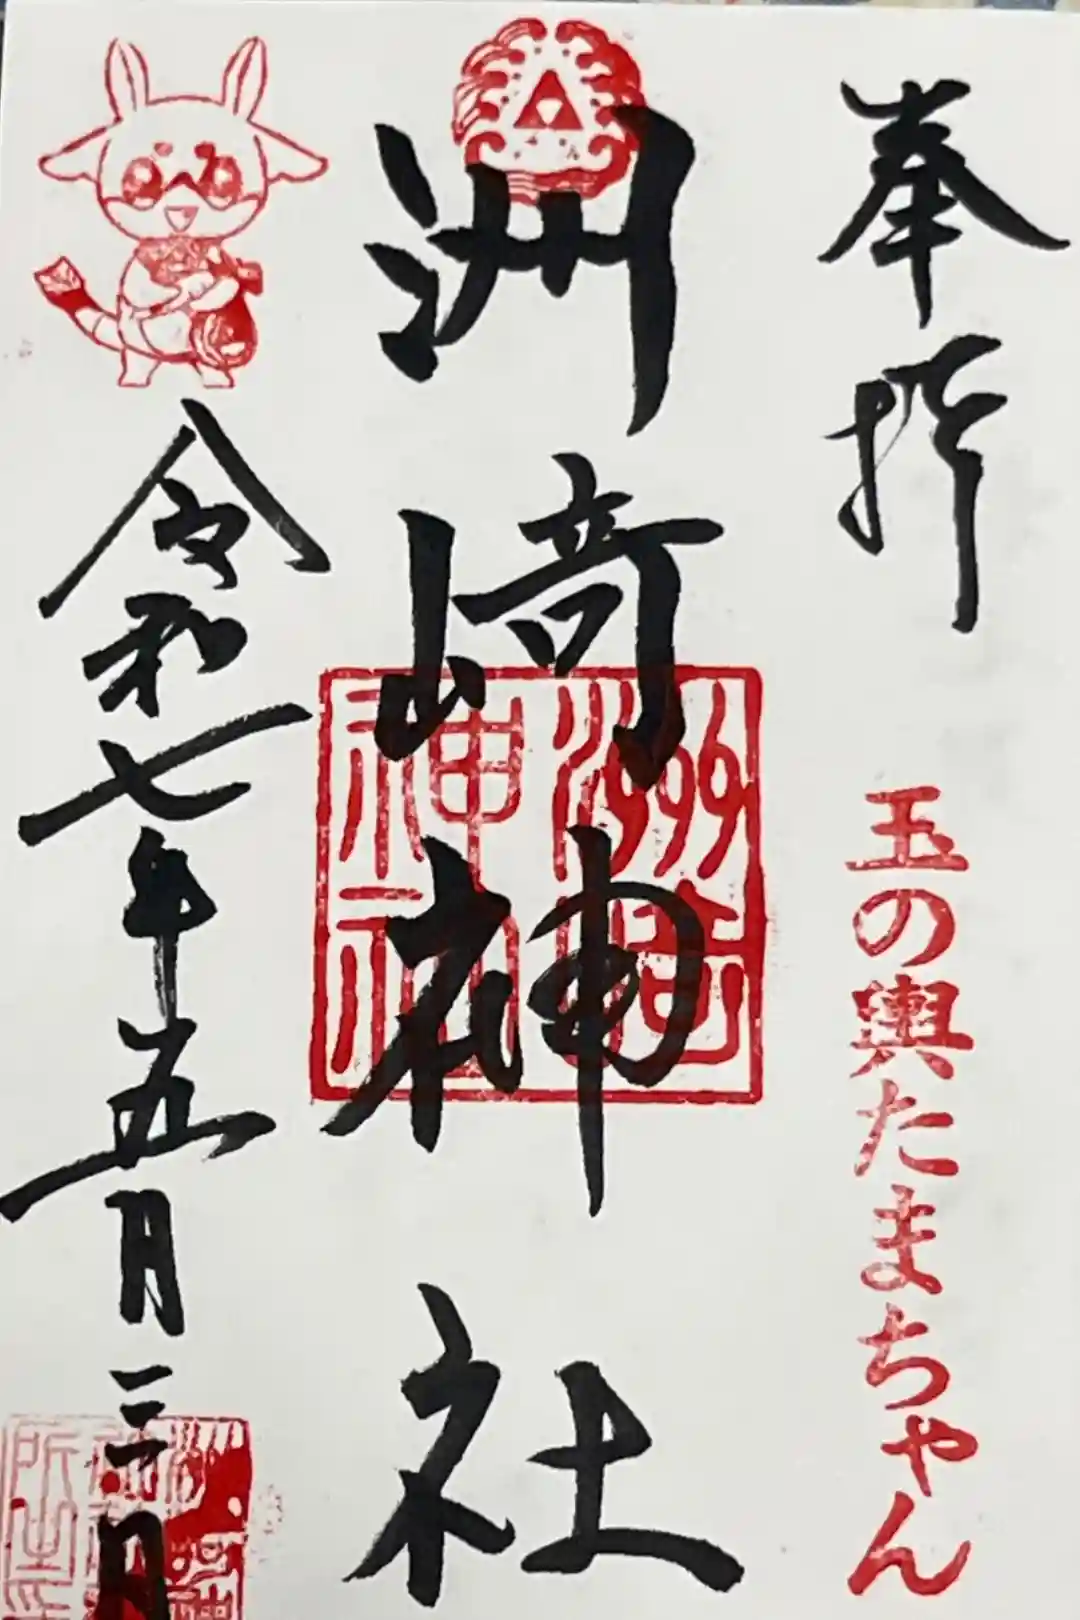 奉拝
玉の輿たまちゃん
洲崎神社
洲崎神社
令和七年五月三日